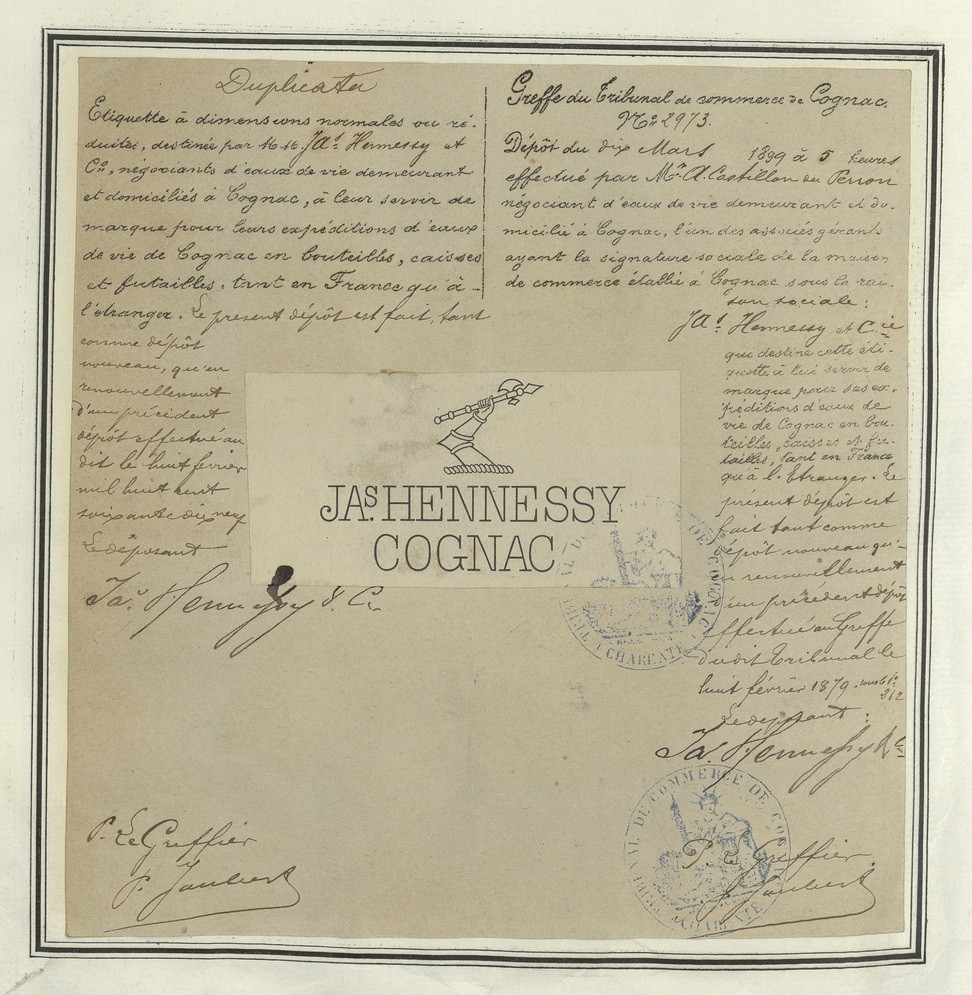 Duplicata
Etiquette à dimensions normales ou ré-
duites, destinée par MM. Jas Hennessy et
Co, négociants d'eaux de vie demeurant
et domiciliés à Cognac, à leur servir de
marque pour leurs expéditions d'eaux
de vie de Cognac en bouteilles, caisses
et futailles, tant en France qu'à
l'étranger. Le présent dépôt est fait, tant
comme dépôt
nouveau, qu'en
renouvellement
d'un précédent
dépôt effectué au
dit le huit fevrier
mil huit cent
soixante dix neuf
Le déposant
Jas Hennessy & Co.
P. Le Greffier
P. Jaubert
Greffe du Tribunal de commerce de Cognac.
No 2973.
Dépôt du dix Mars 1899 à 5 heures
effectué par Mr. A. Castillon du Perron
négociant d'eaux de vie demeurant et do-
micilié à Cognac, l'un des associés gérants
ayant la signature sociale de la maison
de commerce établie à Cognac sous la rai-
son sociale:
Jas Hennessy et Cie
qui destine cette éti-
quette à lui servir de
marque pour ses ex-
péditions d'eaux de
vie de Cognac en bou-
teilles, caisses et fu-
tailles, tant en France
qu'à l'Etranger. Le
présent dépôt est
fait tant comme
dépôt nouveau qu'-
en renouvellement
d'un précédent dépôt
effectué au Greffe
dudit Tribunal le
huit février 1879. sous le No
312
Le déposant:
Jas Hennessy & Co
P. Le Greffier
P. Jaubert
JAS. HENNESSY
COGNAC
TRIBUNAL DE COMMERCE DE COGNAC
CHARENTE
TRIBUNAL DE COMMERCE DE COGNAC
CHARENTE